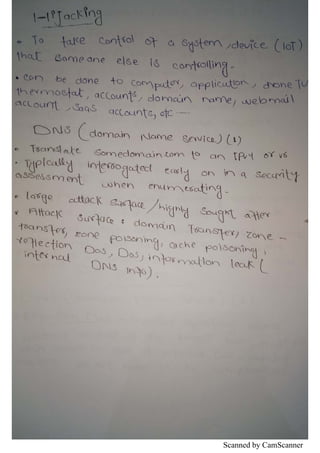 Hijacking
• To take control of a system, device (IoT)
that someone else is controlling.
• can be done to computer, application, drone TV
thermostat, accounts, domain name, webmail
account, SaaS accounts, etc ----
DNS (domain Name Service) (1)
• Translate somedomain.com to an IPv4 or v6
• Typically interrogated early on in a security
assessment when enumerating.
• large attack surface / highly sought after
• Attack surface : domain Transfer, zone -
transfer, zone poisoning, cache poisoning,
reflection Dos, Dos, information leak (
internal DNS info).
Scanned by CamScanner